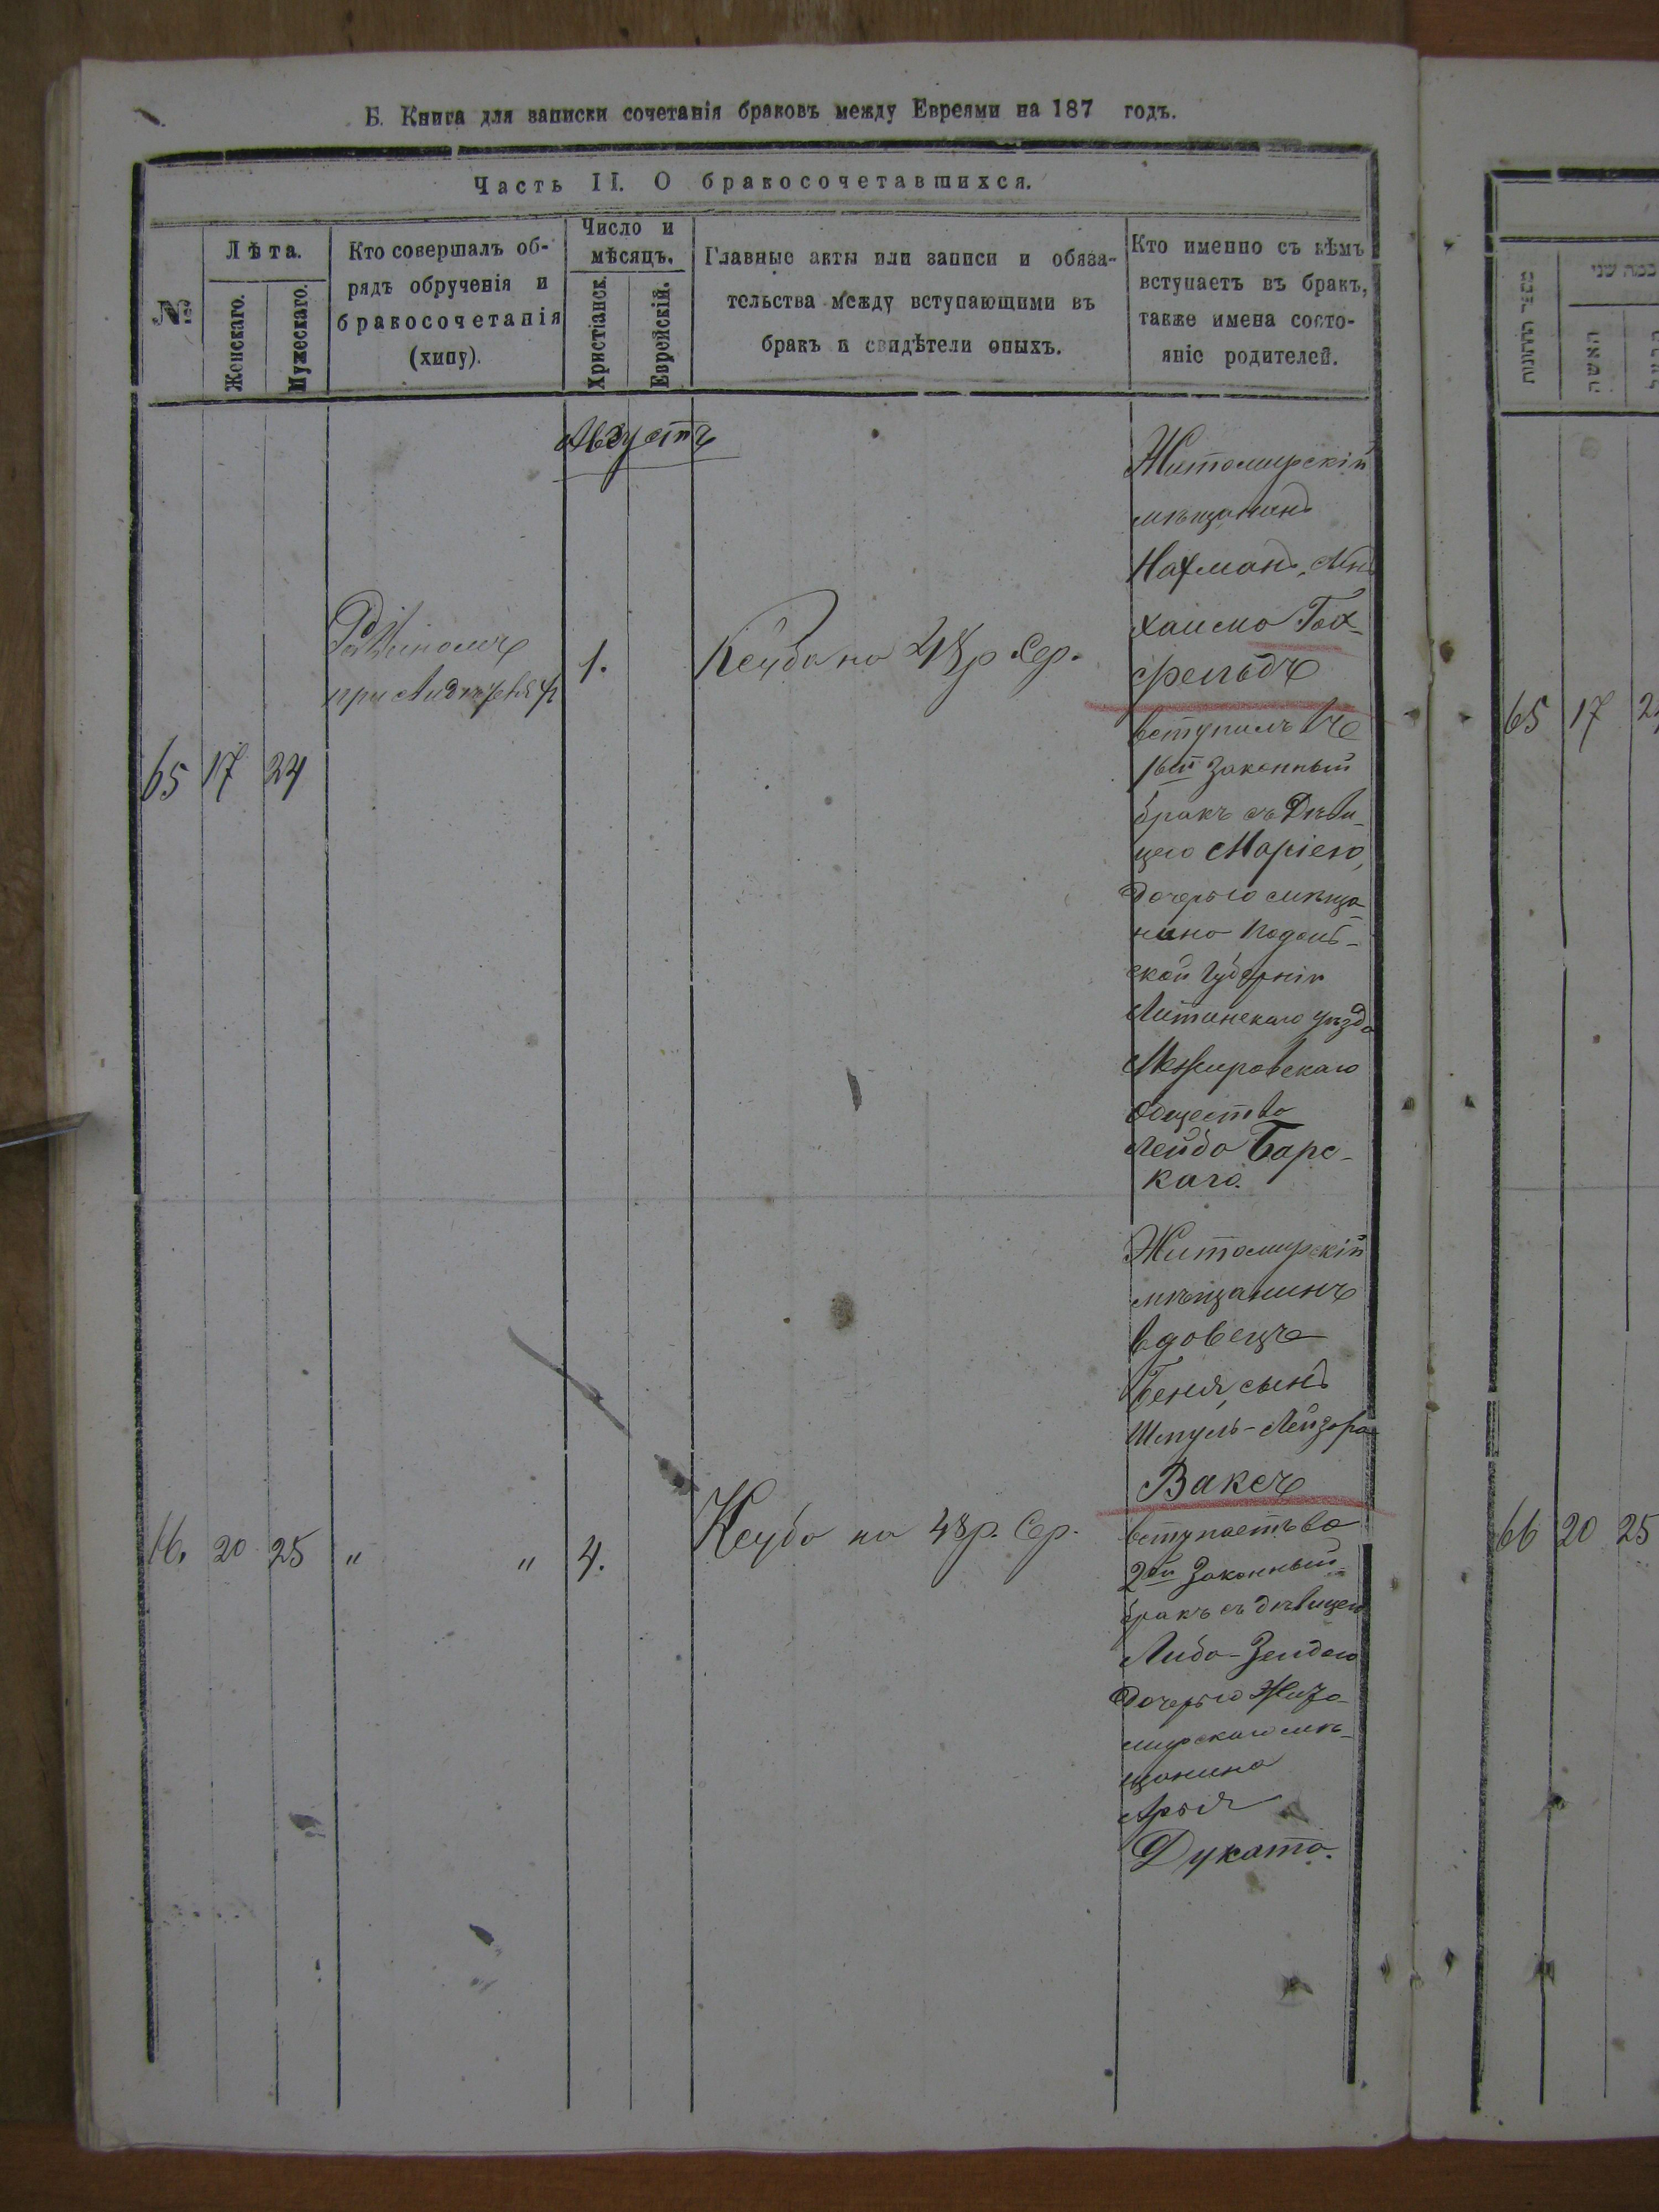 Б. Книга для записки сочетанія браковъ между Евреями на 187 годъ.
Часть II. О бракосочетавшихся.
№
Лѣта.
Женскаго.
Мужескаго.
Кто совершалъ об-
рядъ обрученія и
бракосочетанія
(хипу).
Число и
мѣсяцъ.
Христіанск.
Еврейскій.
Главные акты или записи и обяза-
тельства между вступающими въ
бракъ и свидѣтели оныхъ.
Кто именно съ кѣмъ
вступаетъ въ бракъ,
также имена состо-
яніе родителей.
Августъ
65 17 24
при
1.
Ксуба на 48 р. Сер.
Житомирскій
мѣщанинъ
Нахманъ,
фельдъ
вступилъ въ
1ый законный
бракъ съ Дѣви-
цею Маріею,
дочерью мѣща-
нина Подоль-
ской Губерніи
Литинскаго уѣзда
Межировскаго
Общества
Лейба Барс-
каго.
66. 20 25 " " 4.
Ксуба на 48 р. Сер.
Житомирскій
мѣщанинъ
вдовецъ
Беня, сынъ
Шмуль-Лейзора
Ваксъ
вступаетъ во
2ой Законный
бракъ съ дѣвицею
Либа-Зендею
дочерью Жито-
мирскаго мѣ-
щанина
Арья
Дуката.
מספר החתונות
כמה שני
האשה
65 17
66 20 25